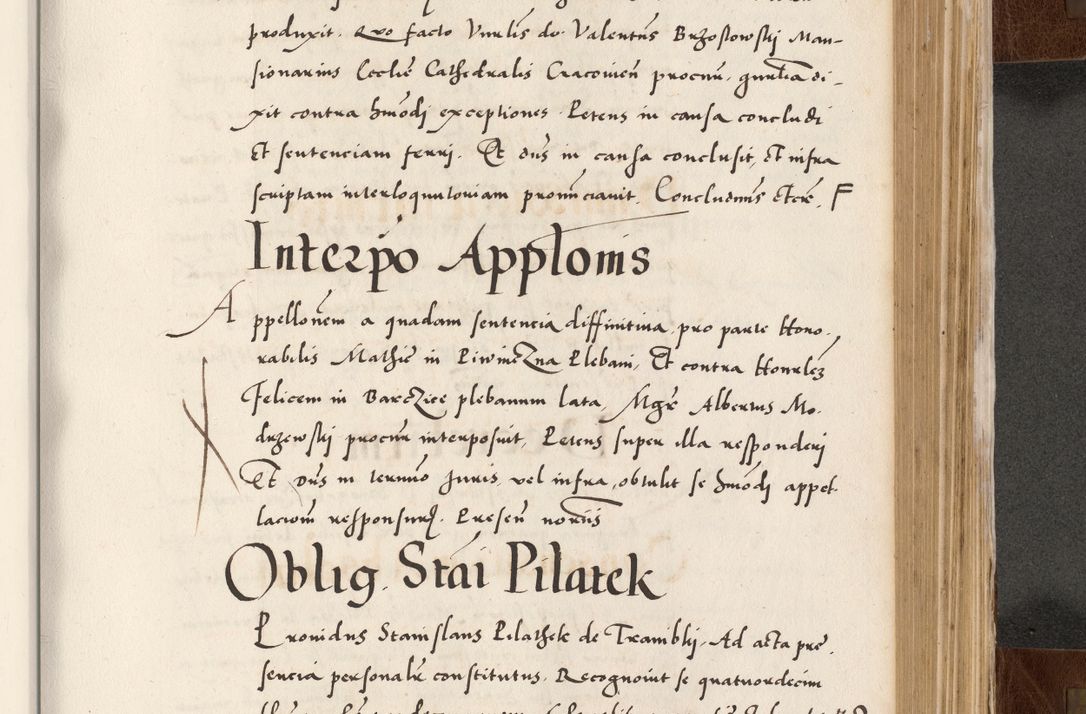 produxit. Quo facto Vnrlis dns Valentns Brzostowskj Man-
sionarius Ecclie Cathedralis Cracovien procnr. gnrlia di-
xit contra hmodj exceptiones. Petens in causa concludi
Et sentenciam ferri. Et dns in causa conclusit, et infra
scriptam interloqutoriam pronnciavit. Concludimus etcre. F
Interpo Applonis
Appellonem a quadam sentencia diffinitiva pro parte Hono-
rabilis Mathie in Piwniczna Plebani, Et contra Honrlez
Felicem in Barczice plebanum lata, Mgr Albertus Mo-
drzewskj procnr interposuit, Petens super illa responderj
Et dns in termino Juris, vel infra, obtulit se hmodj appel-
lacioni responsurum. Presen notariis
Oblig. Stai Pilatek
Providus Stanislaus Pilathek de Trambkj. Ad acta pre-
sencia personalr constitutus. Recognovit se quatuordecim